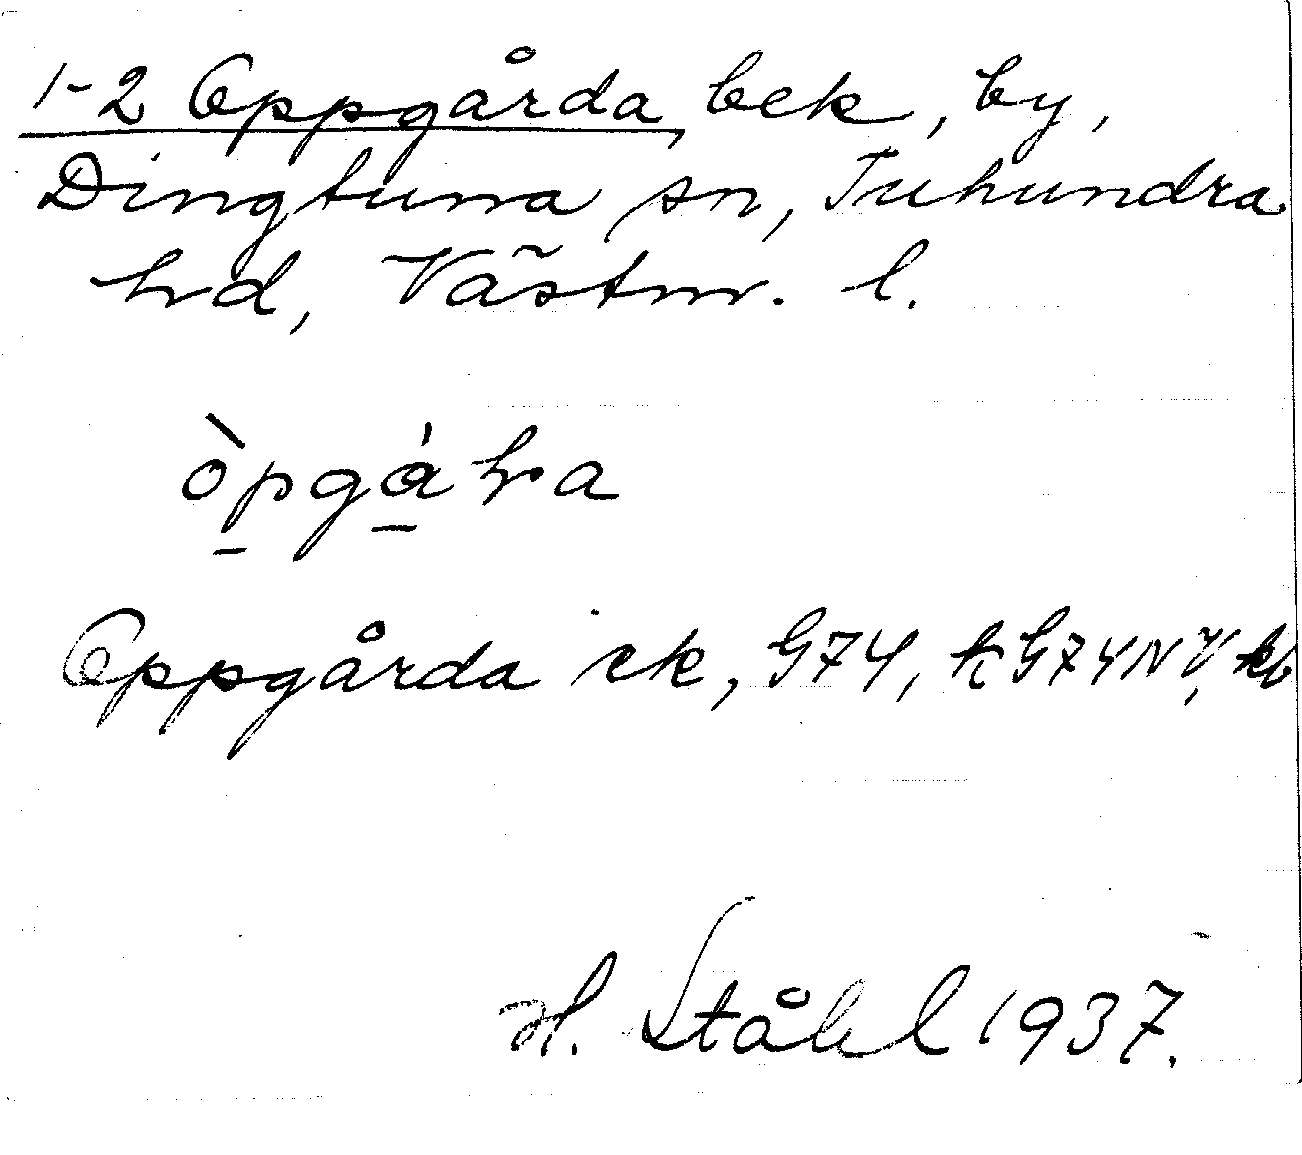 1-2 Oppgårda bek, by,
Dingtuna sn, Tuhundra
hd, Västm. l.
òpgáṛa
Oppgårda ek, G74, k G74NV, kb
H. Ståhl 1937.